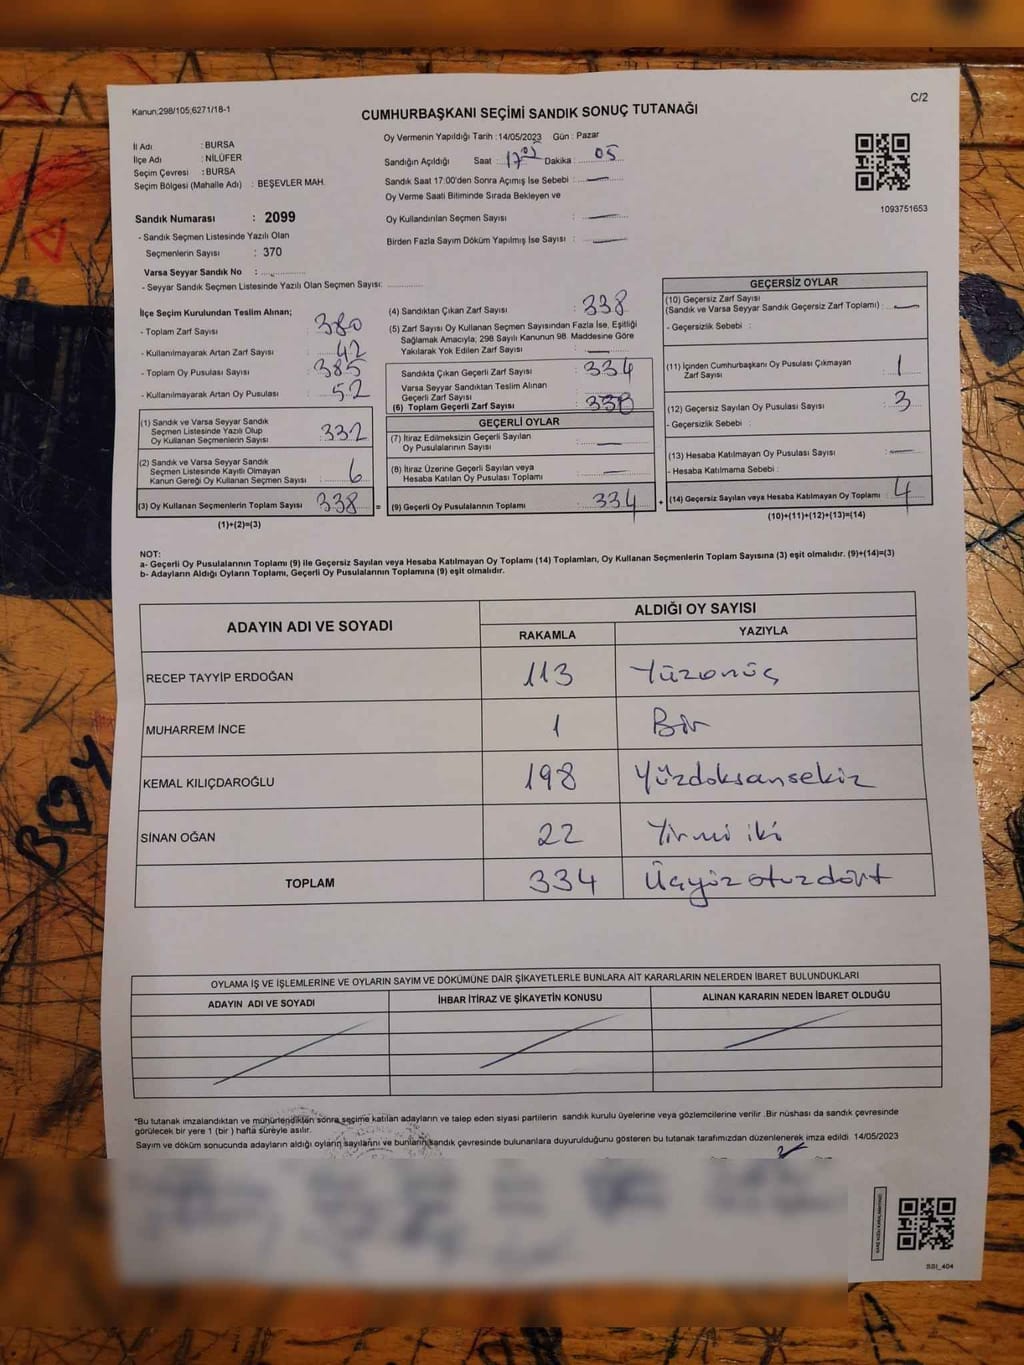 Kanun;298/105;6271/18-1
C/2
CUMHURBAŞKANI SEÇİMİ SANDIK SONUÇ TUTANAĞI
Oy Vermenin Yapıldığı Tarih :14/05/2023 Gün : Pazar
İl Adı : BURSA
İlçe Adı : NİLÜFER
Seçim Çevresi : BURSA
Seçim Bölgesi (Mahalle Adı) : BEŞEVLER MAH.
Sandığın Açıldığı Saat : 17 05 Dakika : 05
Sandık Saat 17:00'den Sonra Açılmış İse Sebebi : —
Oy Verme Saati Bitiminde Sırada Bekleyen ve
Oy Kullandırılan Seçmen Sayısı : —
Birden Fazla Sayım Döküm Yapılmış İse Sayısı : —
1093751653
Sandık Numarası : 2099
- Sandık Seçmen Listesinde Yazılı Olan
Seçmenlerin Sayısı : 370
Varsa Seyyar Sandık No :
- Seyyar Sandık Seçmen Listesinde Yazılı Olan Seçmen Sayısı:
İlçe Seçim Kurulundan Teslim Alınan;
- Toplam Zarf Sayısı : 380
- Kullanılmayarak Artan Zarf Sayısı : 42
- Toplam Oy Pusulası Sayısı : 385
- Kullanılmayarak Artan Oy Pusulası : 52
(1) Sandık ve Varsa Seyyar Sandık
Seçmen Listesinde Yazılı Olup
Oy Kullanan Seçmenlerin Sayısı : 332
(2) Sandık ve Varsa Seyyar Sandık
Seçmen Listesinde Kayıtlı Olmayan
Kanun Gereği Oy Kullanan Seçmen Sayısı : 6
(3) Oy Kullanan Seçmenlerin Toplam Sayısı : 338 =
(1)+(2)=(3)
(4) Sandıktan Çıkan Zarf Sayısı : 338
(5) Zarf Sayısı Oy Kullanan Seçmen Sayısından Fazla İse, Eşitliği
Sağlamak Amacıyla; 298 Sayılı Kanunun 98. Maddesine Göre
Yakılarak Yok Edilen Zarf Sayısı : —
Sandıkta Çıkan Geçerli Zarf Sayısı : 334
Varsa Seyyar Sandıktan Teslim Alınan
Geçerli Zarf Sayısı :
(6) Toplam Geçerli Zarf Sayısı :
GEÇERLİ OYLAR
(7) İtiraz Edilmeksizin Geçerli Sayılan
Oy Pusulalarının Sayısı : —
(8) İtiraz Üzerine Geçerli Sayılan veya
Hesaba Katılan Oy Pusulası Toplamı : —
(9) Geçerli Oy Pusulalarının Toplamı : 334 +
GEÇERSİZ OYLAR
(10) Geçersiz Zarf Sayısı
(Sandık ve Varsa Seyyar Sandık Geçersiz Zarf Toplamı) : —
- Geçersizlik Sebebi :
(11) İçinden Cumhurbaşkanı Oy Pusulası Çıkmayan
Zarf Sayısı : 1
(12) Geçersiz Sayılan Oy Pusulası Sayısı : 3
- Geçersizlik Sebebi :
(13) Hesaba Katılmayan Oy Pusulası Sayısı : —
- Hesaba Katılmama Sebebi :
(14) Geçersiz Sayılan veya Hesaba Katılmayan Oy Toplamı : 4
(10)+(11)+(12)+(13)=(14)
NOT:
a- Geçerli Oy Pusulalarının Toplamı (9) ile Geçersiz Sayılan veya Hesaba Katılmayan Oy Toplamı (14) Toplamları, Oy Kullanan Seçmenlerin Toplam Sayısına (3) eşit olmalıdır. (9)+(14)=(3)
b- Adayların Aldığı Oyların Toplamı, Geçerli Oy Pusulalarının Toplamına (9) eşit olmalıdır.
ADAYIN ADI VE SOYADI
ALDIĞI OY SAYISI
RAKAMLA YAZIYLA
RECEP TAYYİP ERDOĞAN 113 Yüzonüç
MUHARREM İNCE 1 Bir
KEMAL KILIÇDAROĞLU 198 Yüzdoksansekiz
SİNAN OĞAN 22 Yirmi iki
TOPLAM 334 Üçyüz otuzdört
OYLAMA İŞ VE İŞLEMLERİNE VE OYLARIN SAYIM VE DÖKÜMÜNE DAİR ŞİKAYETLERLE BUNLARA AİT KARARLARIN NELERDEN İBARET BULUNDUKLARI
ADAYIN ADI VE SOYADI İHBAR İTİRAZ VE ŞİKAYETİN KONUSU ALINAN KARARIN NEDEN İBARET OLDUĞU
*Bu tutanak imzalandıktan ve mühürlendikten sonra seçime katılan adayların ve talep eden siyasi partilerin sandık kurulu üyelerine veya gözlemcilerine verilir .Bir nüshası da sandık çevresinde
görülecek bir yere 1 (bir ) hafta süreyle asılır.
Sayım ve döküm sonucunda adayların aldığı oyların sayılarını ve bunların sandık çevresinde bulunanlara duyurulduğunu gösteren bu tutanak tarafımızdan düzenlenerek imza edildi. 14/05/2023
SSI_404